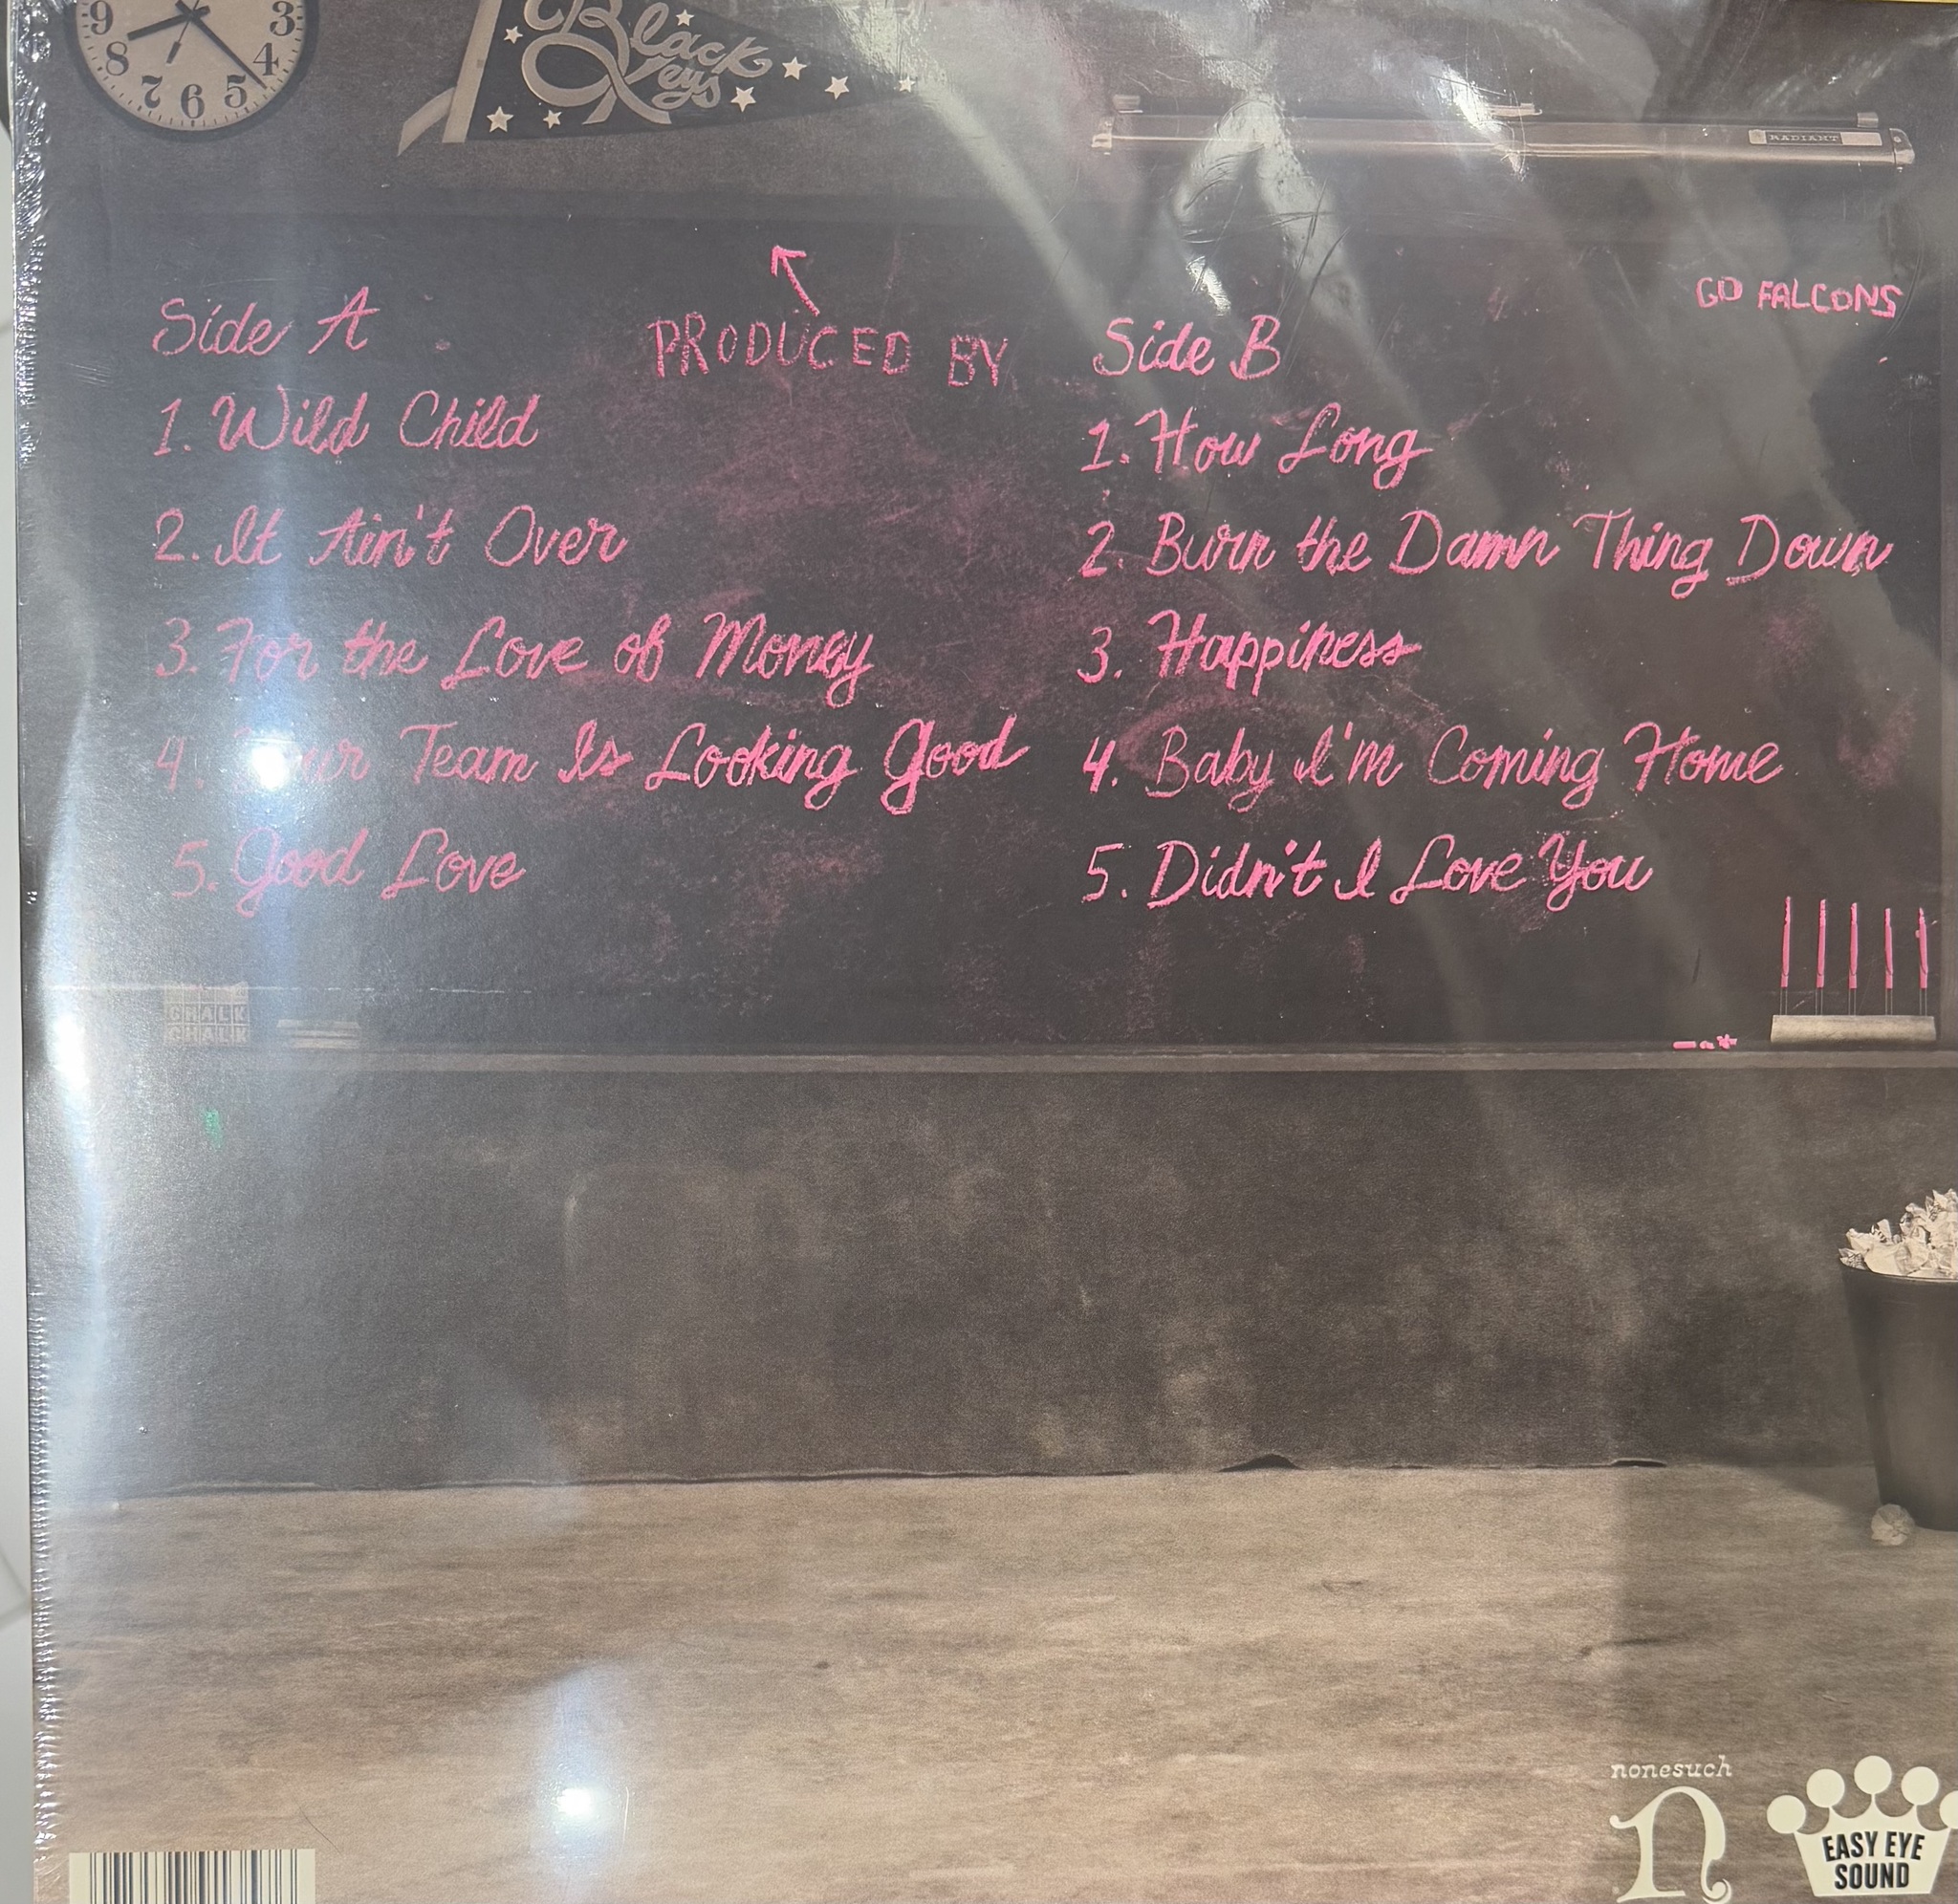 9
3
8
4
7
6
5
Black
Keys
RADIANT
GO FALCONS
PRODUCED BY
Side A
1. Wild Child
2. It Ain't Over
3. For the Love of Money
4. Your Team Is Looking Good
5. Good Love
Side B
1. How Long
2. Burn the Damn Thing Down
3. Happiness
4. Baby I'm Coming Home
5. Didn't I Love You
CHALK
CHALK
nonesuch
n
EASY EYE
SOUND